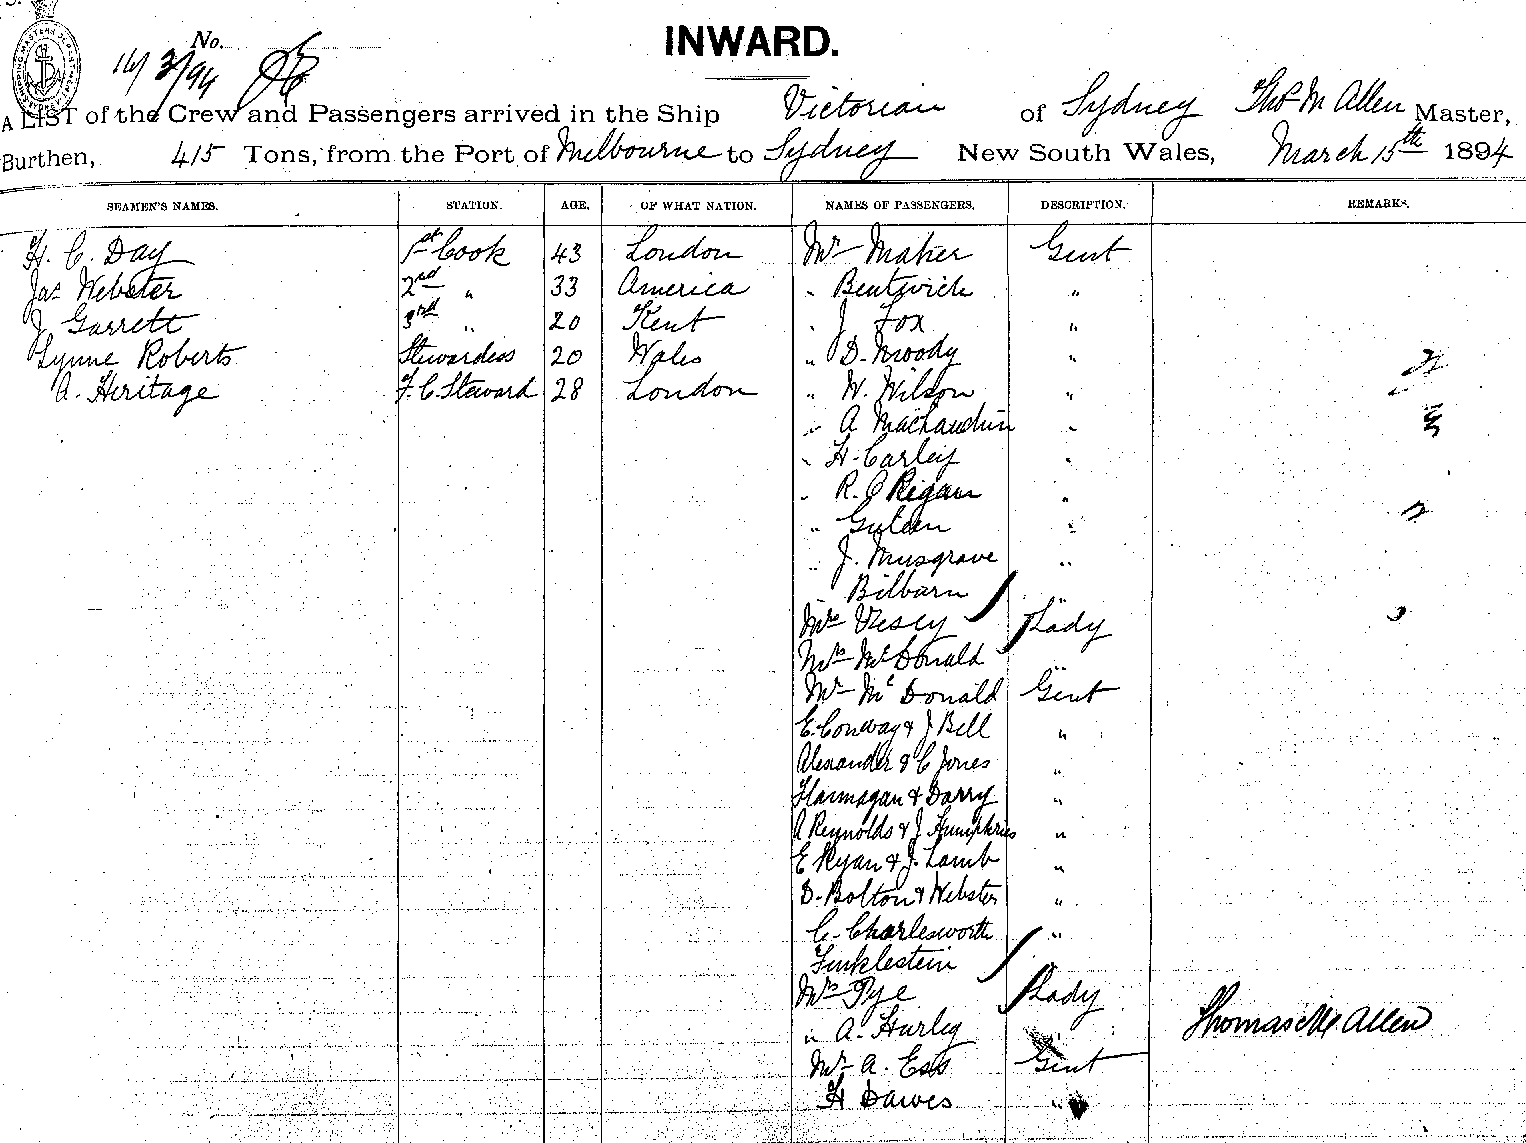 INWARD.
No.
16/3/94
A LIST of the Crew and Passengers arrived in the Ship Victorian of Sydney Thos M Allen Master,
Burthen, 415 Tons, from the Port of Melbourne to Sydney New South Wales, March 15th 1894
SEAMEN'S NAMES. STATION. AGE. OF WHAT NATION. NAMES OF PASSENGERS. DESCRIPTION. REMARKS.
H. C. Day 1st Cook 43 London Mr Maher Gent
Jas Webster 2nd " 33 America " Bentwich "
J Garrett 3rd " 20 Kent " J Fox "
Lynne Roberts Stewardess 20 Wales " D. Moody "
A. Heritage F.C. Steward 28 London " W. Wilson "
" A "
" H. Carley "
" R. J Rigan "
" "
" J. Musgrave "
Bilbarn "
Mrs Vesey Lady
Mrs McDonald "
Mr McDonald Gent
E. Conway & J Bell "
Alexander & C Jones "
Flannagan & Darry "
A Reynolds & J Humphries "
E Ryan & J. Lamb "
D. Bolton & Webster "
C. Charlesworth "
Finklestein
Mrs Pye Lady
" A. Hurley "
Thomas M Allen
Mr A. Ess Gent
H Dawes "